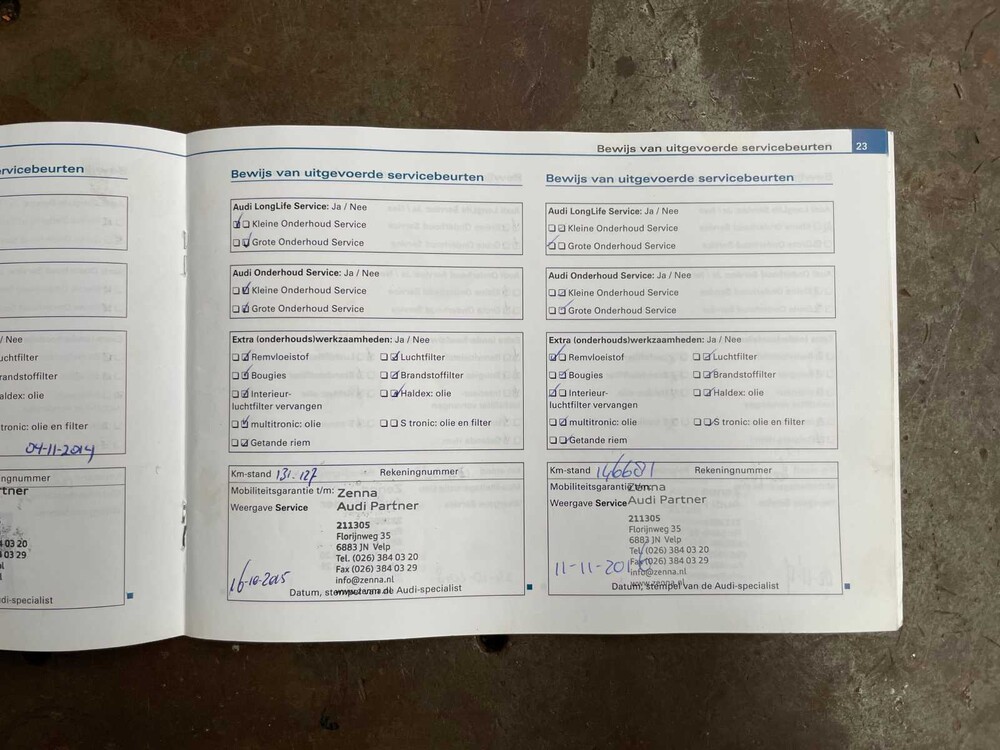 Bewijs van uitgevoerde servicebeurten 23
rvicebeurten
/ Nee
uchtfilter
randstoffilter
aldex: olie
tronic: olie en filter
04-11-2014
ngnummer
tner
4 03 20
4 03 29
di-specialist
Bewijs van uitgevoerde servicebeurten
Audi LongLife Service: Ja / Nee
Kleine Onderhoud Service
Grote Onderhoud Service
Audi Onderhoud Service: Ja / Nee
Kleine Onderhoud Service
Grote Onderhoud Service
Extra (onderhouds)werkzaamheden: Ja / Nee
Remvloeistof Luchtfilter
Bougies Brandstoffilter
Interieur- Haldex: olie
luchtfilter vervangen
multitronic: olie S tronic: olie en filter
Getande riem
Km-stand 131.127 Rekeningnummer
Mobiliteitsgarantie t/m: Zenna
Weergave Service Audi Partner
211305
Florijnweg 35
6883 JN Velp
Tel. (026) 384 03 20
Fax (026) 384 03 29
info@zenna.nl
16-10-2015
www.zenna.nl
Datum, stempel van de Audi-specialist
Bewijs van uitgevoerde servicebeurten
Audi LongLife Service: Ja / Nee
Kleine Onderhoud Service
Grote Onderhoud Service
Audi Onderhoud Service: Ja / Nee
Kleine Onderhoud Service
Grote Onderhoud Service
Extra (onderhouds)werkzaamheden: Ja / Nee
Remvloeistof Luchtfilter
Bougies Brandstoffilter
Interieur- Haldex: olie
luchtfilter vervangen
multitronic: olie S tronic: olie en filter
Getande riem
Km-stand 146681 Rekeningnummer
Mobiliteitsgarantie t/m: Zenna
Weergave Service Audi Partner
211305
Florijnweg 35
6883 JN Velp
Tel. (026) 384 03 20
Fax (026) 384 03 29
11-11-2016
info@zenna.nl
www.zenna.nl
Datum, stempel van de Audi-specialist